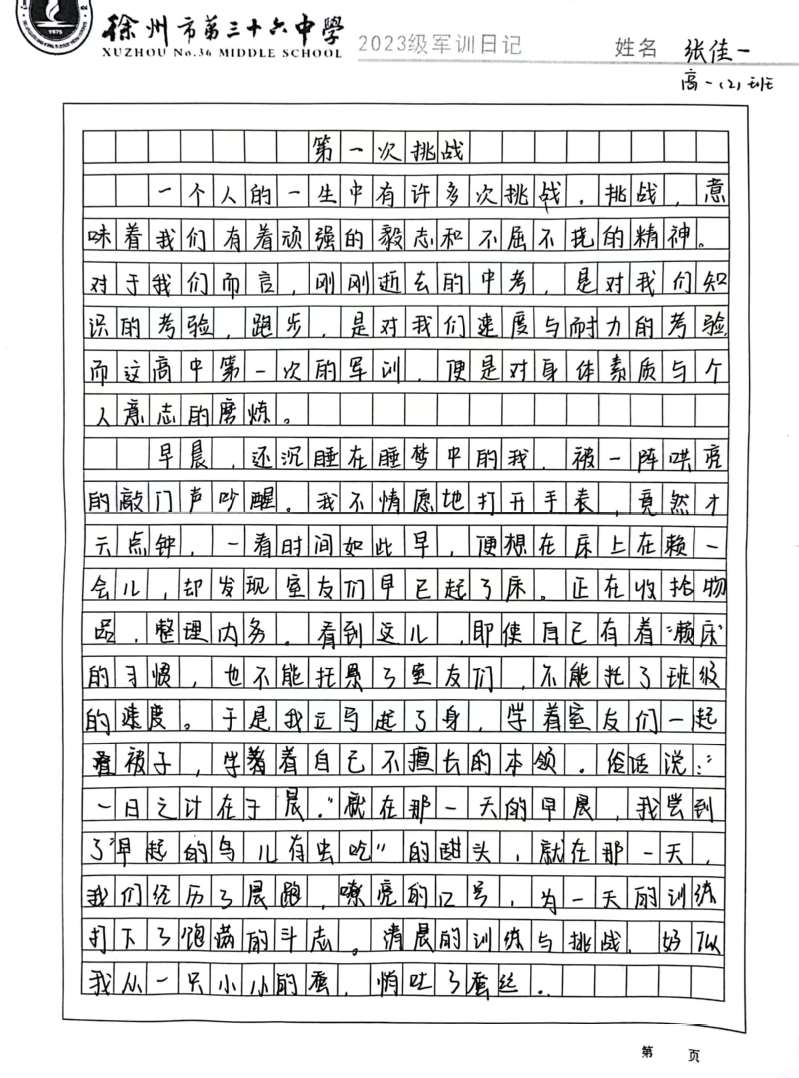 徐州市第三十六中學
XUZHOU No.36 MIDDLE SCHOOL
2023级军训日记
姓名 张佳一
高一(2)班
第一次挑战
一个人的一生中有许多次挑战。挑战,意
味着我们有着顽强的毅志和不屈不挠的精神。
对于我们而言,刚刚逝去的中考,是对我们知
识的考验,跑步,是对我们速度与耐力的考验
而这高中第一次的军训,便是对身体素质与个
人意志的磨炼。
早晨,还沉睡在睡梦中的我,被一阵哄亮
的敲门声吵醒。我不情愿地打开手表,竟然才
六点钟,一看时间如此早,便想在床上在赖一
会儿,却发现室友们早已起了床。正在收拾物
品,整理内务。看到这儿,即使自己有着濑床
的习惯,也不能托累了室友们,不能托了班级
的速度。于是我立马起了身,学着室友们一起
叠被子,学着自己不擅长的本领。俗话说:“
一日之计在于晨。”就在那一天的早晨,我尝到
了“早起的鸟儿有虫吃”的甜头,就在那一天,
我们经历了晨跑,嘹亮的口号,为一天的训练
打下了饱满的斗志。清晨的训练与挑战,好似
我从一只小小的蚕,悄吐了蚕丝..
第 页